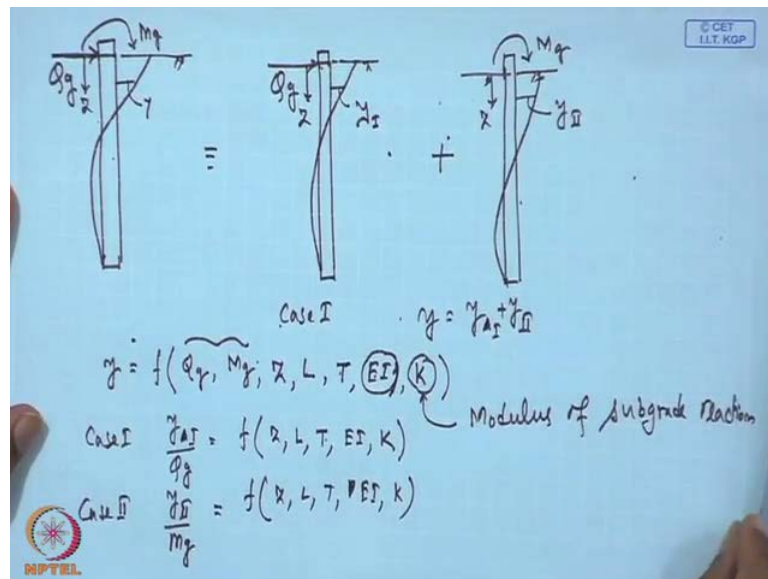 © CET
I.I.T. KGP
Mg
Qg
Z
y
≡
Qg
Z
yI
+
Mg
Z
yII
Case I
y = yAI + yII
y = f(Qg, Mg, Z, L, T, EI, K)
Modulus of subgrade reaction
Case I yAI/Qg = f(Z, L, T, EI, K)
Case II yII/Mg = f(Z, L, T, EI, K)
NPTEL